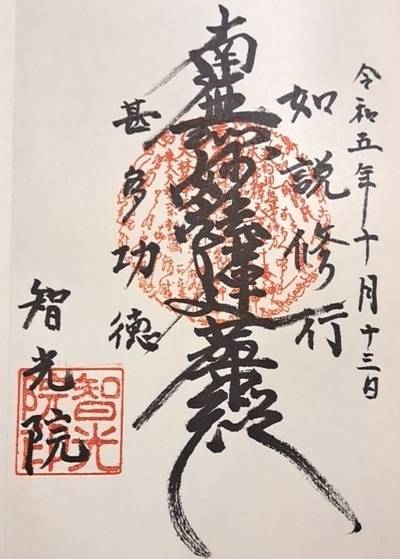 令和五年十月十三日
如説修行
南無妙法蓮華経
甚多功徳
智光院
智光
院印